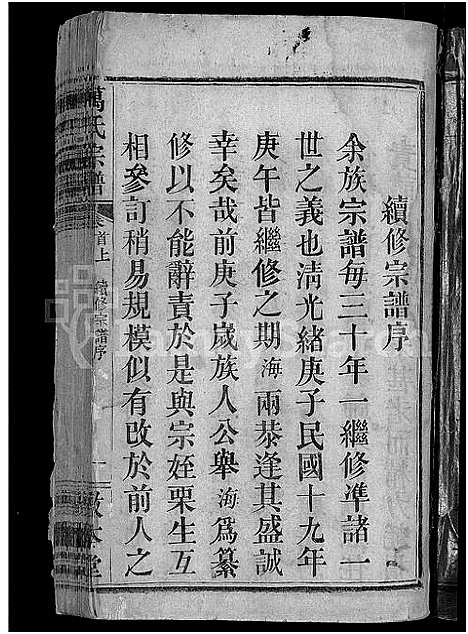 續修宗譜序
余族宗譜每三十年一繼修準諸一
世之義也清光緒庚子民國十九年
庚午皆繼修之期海兩恭逢其盛誠
幸矣哉前庚子歲族人公舉海爲纂
修以不能辭責於是與宗姪栗生互
相參訂稍易規模似有改於前人之
萬氏宗譜
卷首上
續修宗譜序
一
敦本堂